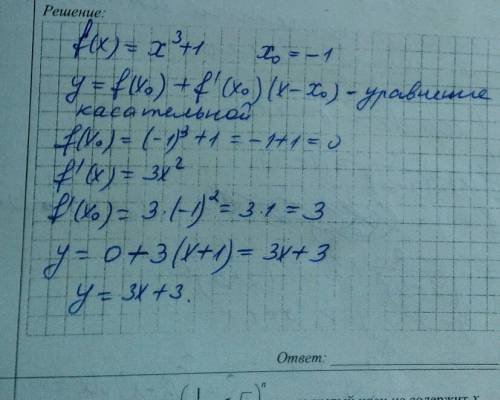 Решение:
f(x) = x³+1 x₀ = -1
y = f(x₀) + f'(x₀)(x-x₀) - уравнение
касательной
f(x₀) = (-1)³+1 = -1+1 = 0
f'(x) = 3x²
f'(x₀) = 3·(-1)² = 3·1 = 3
y = 0+3(x+1) = 3x+3
y = 3x+3.
Ответ:
член не содержит x